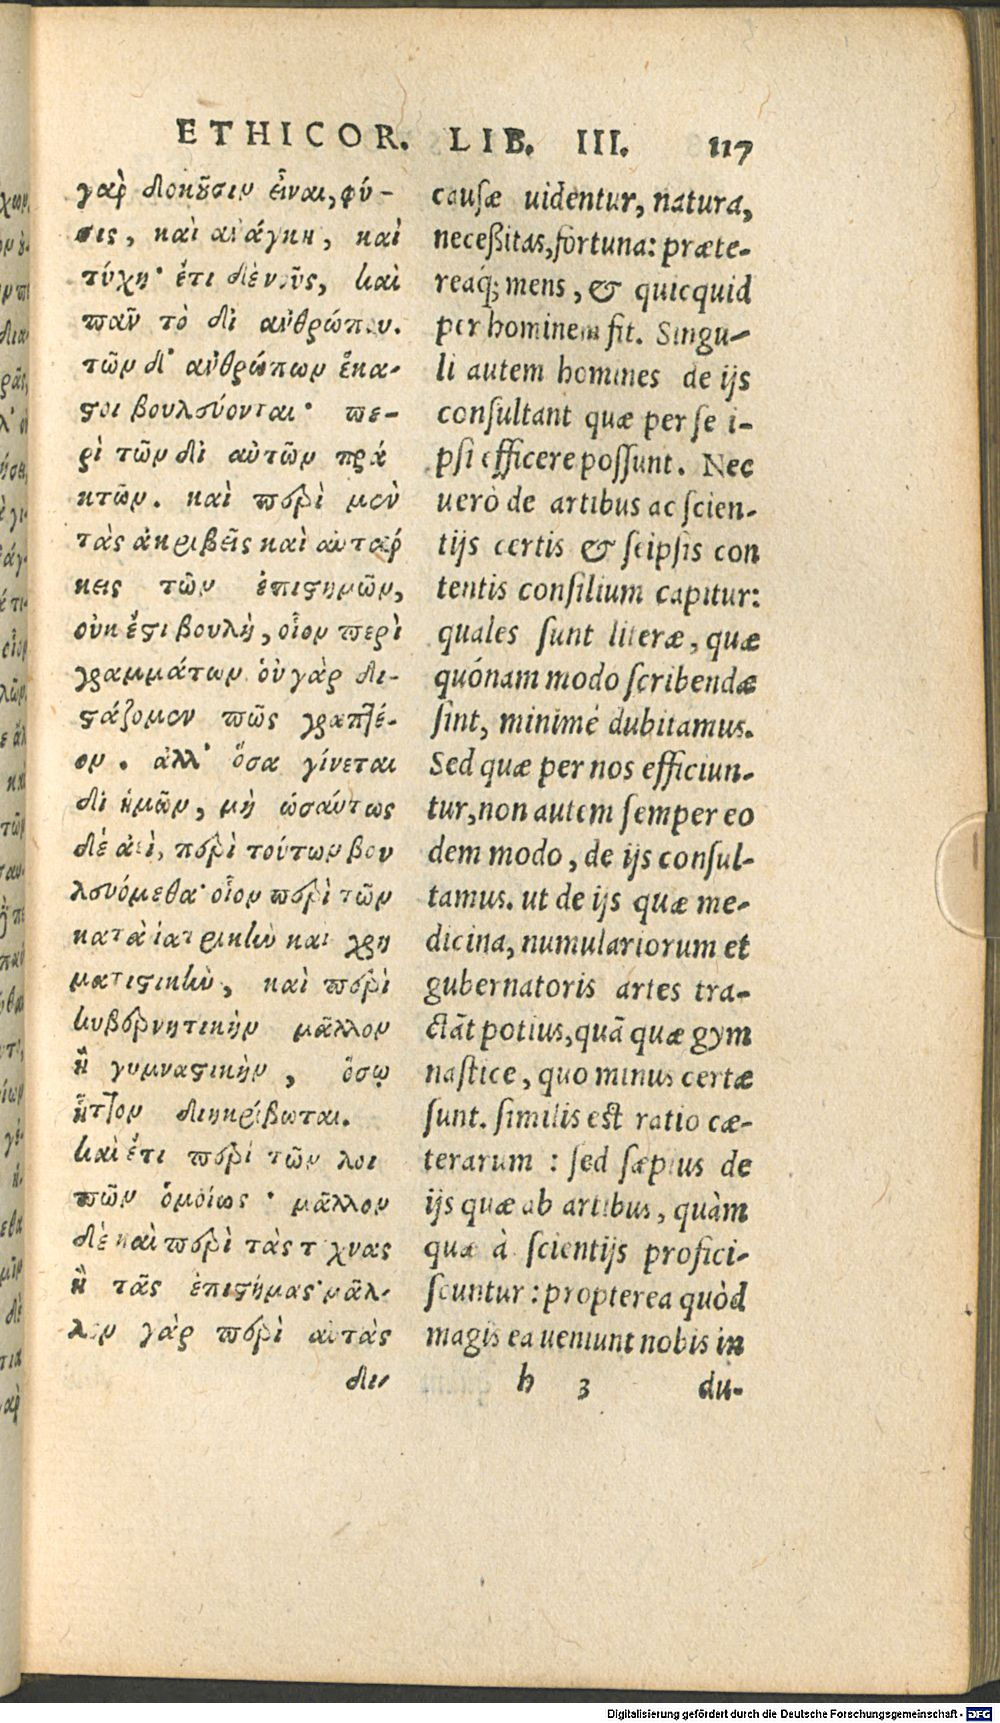 ETHICOR. LIB. III. 117
γὰρ δοκοῦσιν εἶναι, φύ-
σις, καὶ ἀνάγκη, καὶ
τύχη· ἔτι δὲ νοῦς, καὶ
πᾶν τὸ δι ἀνθρώπου.
τῶν δ' ἀνθρώπων ἕκα-
στοι βουλεύονται· πε-
ρὶ τῶν δι αὐτῶν πρά
κτῶν. καὶ περὶ μὲν
τὰς ἀκριβεῖς καὶ αὐταρ
κεις τῶν ἐπιστημῶν,
οὐκ ἔστι βουλὴ, οἷον περὶ
γραμμάτων. ὀυ γὰρ δι-
στάζομεν πῶς γραπτέ-
ον. ἀλλ' ὅσα γίνεται
δι ἡμῶν, μὴ ὡσαύτως
δὲ ἀεὶ, περὶ τούτων βου
λευόμεθα· οἷον περὶ τῶν
κατὰ ἰατρικὴν και χρη
ματιστικὴν, καὶ περὶ
κυβερνητικὴν μᾶλλον
ἢ γυμναστικὴν, ὅσῳ
ἧττον διηκρίβωται.
καὶ ἔτι περὶ τῶν λοι
πῶν ὁμοίως· μᾶλλον
δὲ καὶ περὶ τὰς τέχνας
ἢ τὰς ἐπιστήμας· μᾶλ-
λον γὰρ περὶ αὐτὰς
δι-
causæ uidentur, natura,
neceßitas, fortuna: præte-
reaq́; mens, & quicquid
per hominem fit. Singu-
li autem homines de ijs
consultant quæ per se i-
psi efficere possunt. Nec
uerò de artibus ac scien-
tijs certis & seipsis con
tentis consilium capitur:
quales sunt literæ, quæ
quónam modo scribendæ
sint, minimè dubitamus.
Sed quæ per nos efficiun-
tur, non autem semper eo
dem modo, de ijs consul-
tamus. ut de ijs quæ me-
dicina, numulariorum et
gubernatoris artes tra-
ctãt potius, quã quæ gym
nastice, quo minus certæ
sunt. similis est ratio cæ-
terarum : sed sæpius de
ijs quæ ab artibus, quàm
quæ à scientijs profici-
scuntur : propterea quòd
magis ea ueniunt nobis in
h 3 du-
Digitalisierung gefördert durch die Deutsche Forschungsgemeinschaft - DFG